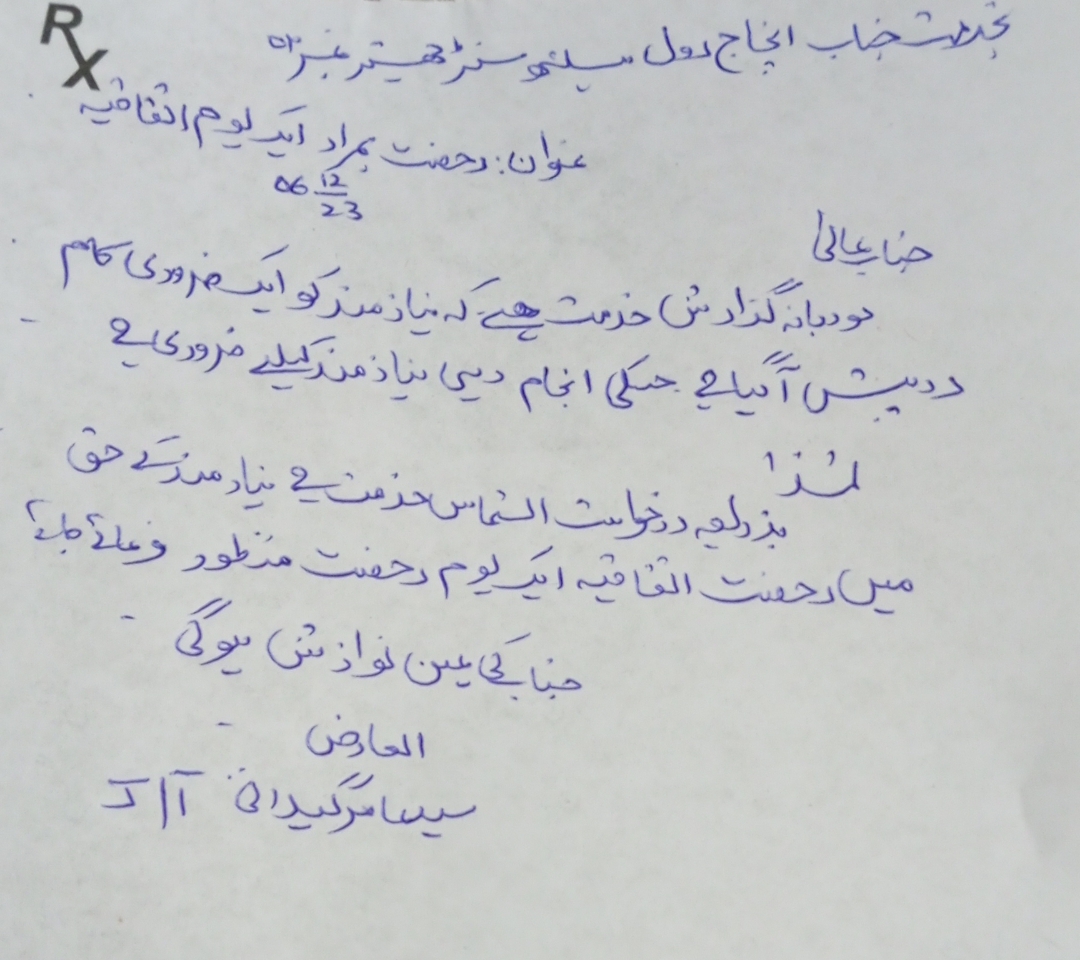 Rx
بخدمت جناب انچارج رول ہیلتھ سنٹر تھیتر نمبر 01
عنوان: رخصت بمراد ایک یوم اتفاقیہ
06 12/23
جناب عالی
مودبانہ گذارش خدمت ہے کہ نیازمند کو ایک ضروری کام
درپیش آگیا ہے جسکی انجام دہی نیازمند کیلئے ضروری ہے
لہذا
بذریعہ درخواست التماس خدمت ہے نیازمند کے حق
میں رخصت اتفاقیہ ایک یوم رخصت منظور فرمائے جائے
جناب کی عین نوازش ہوگی
العارض